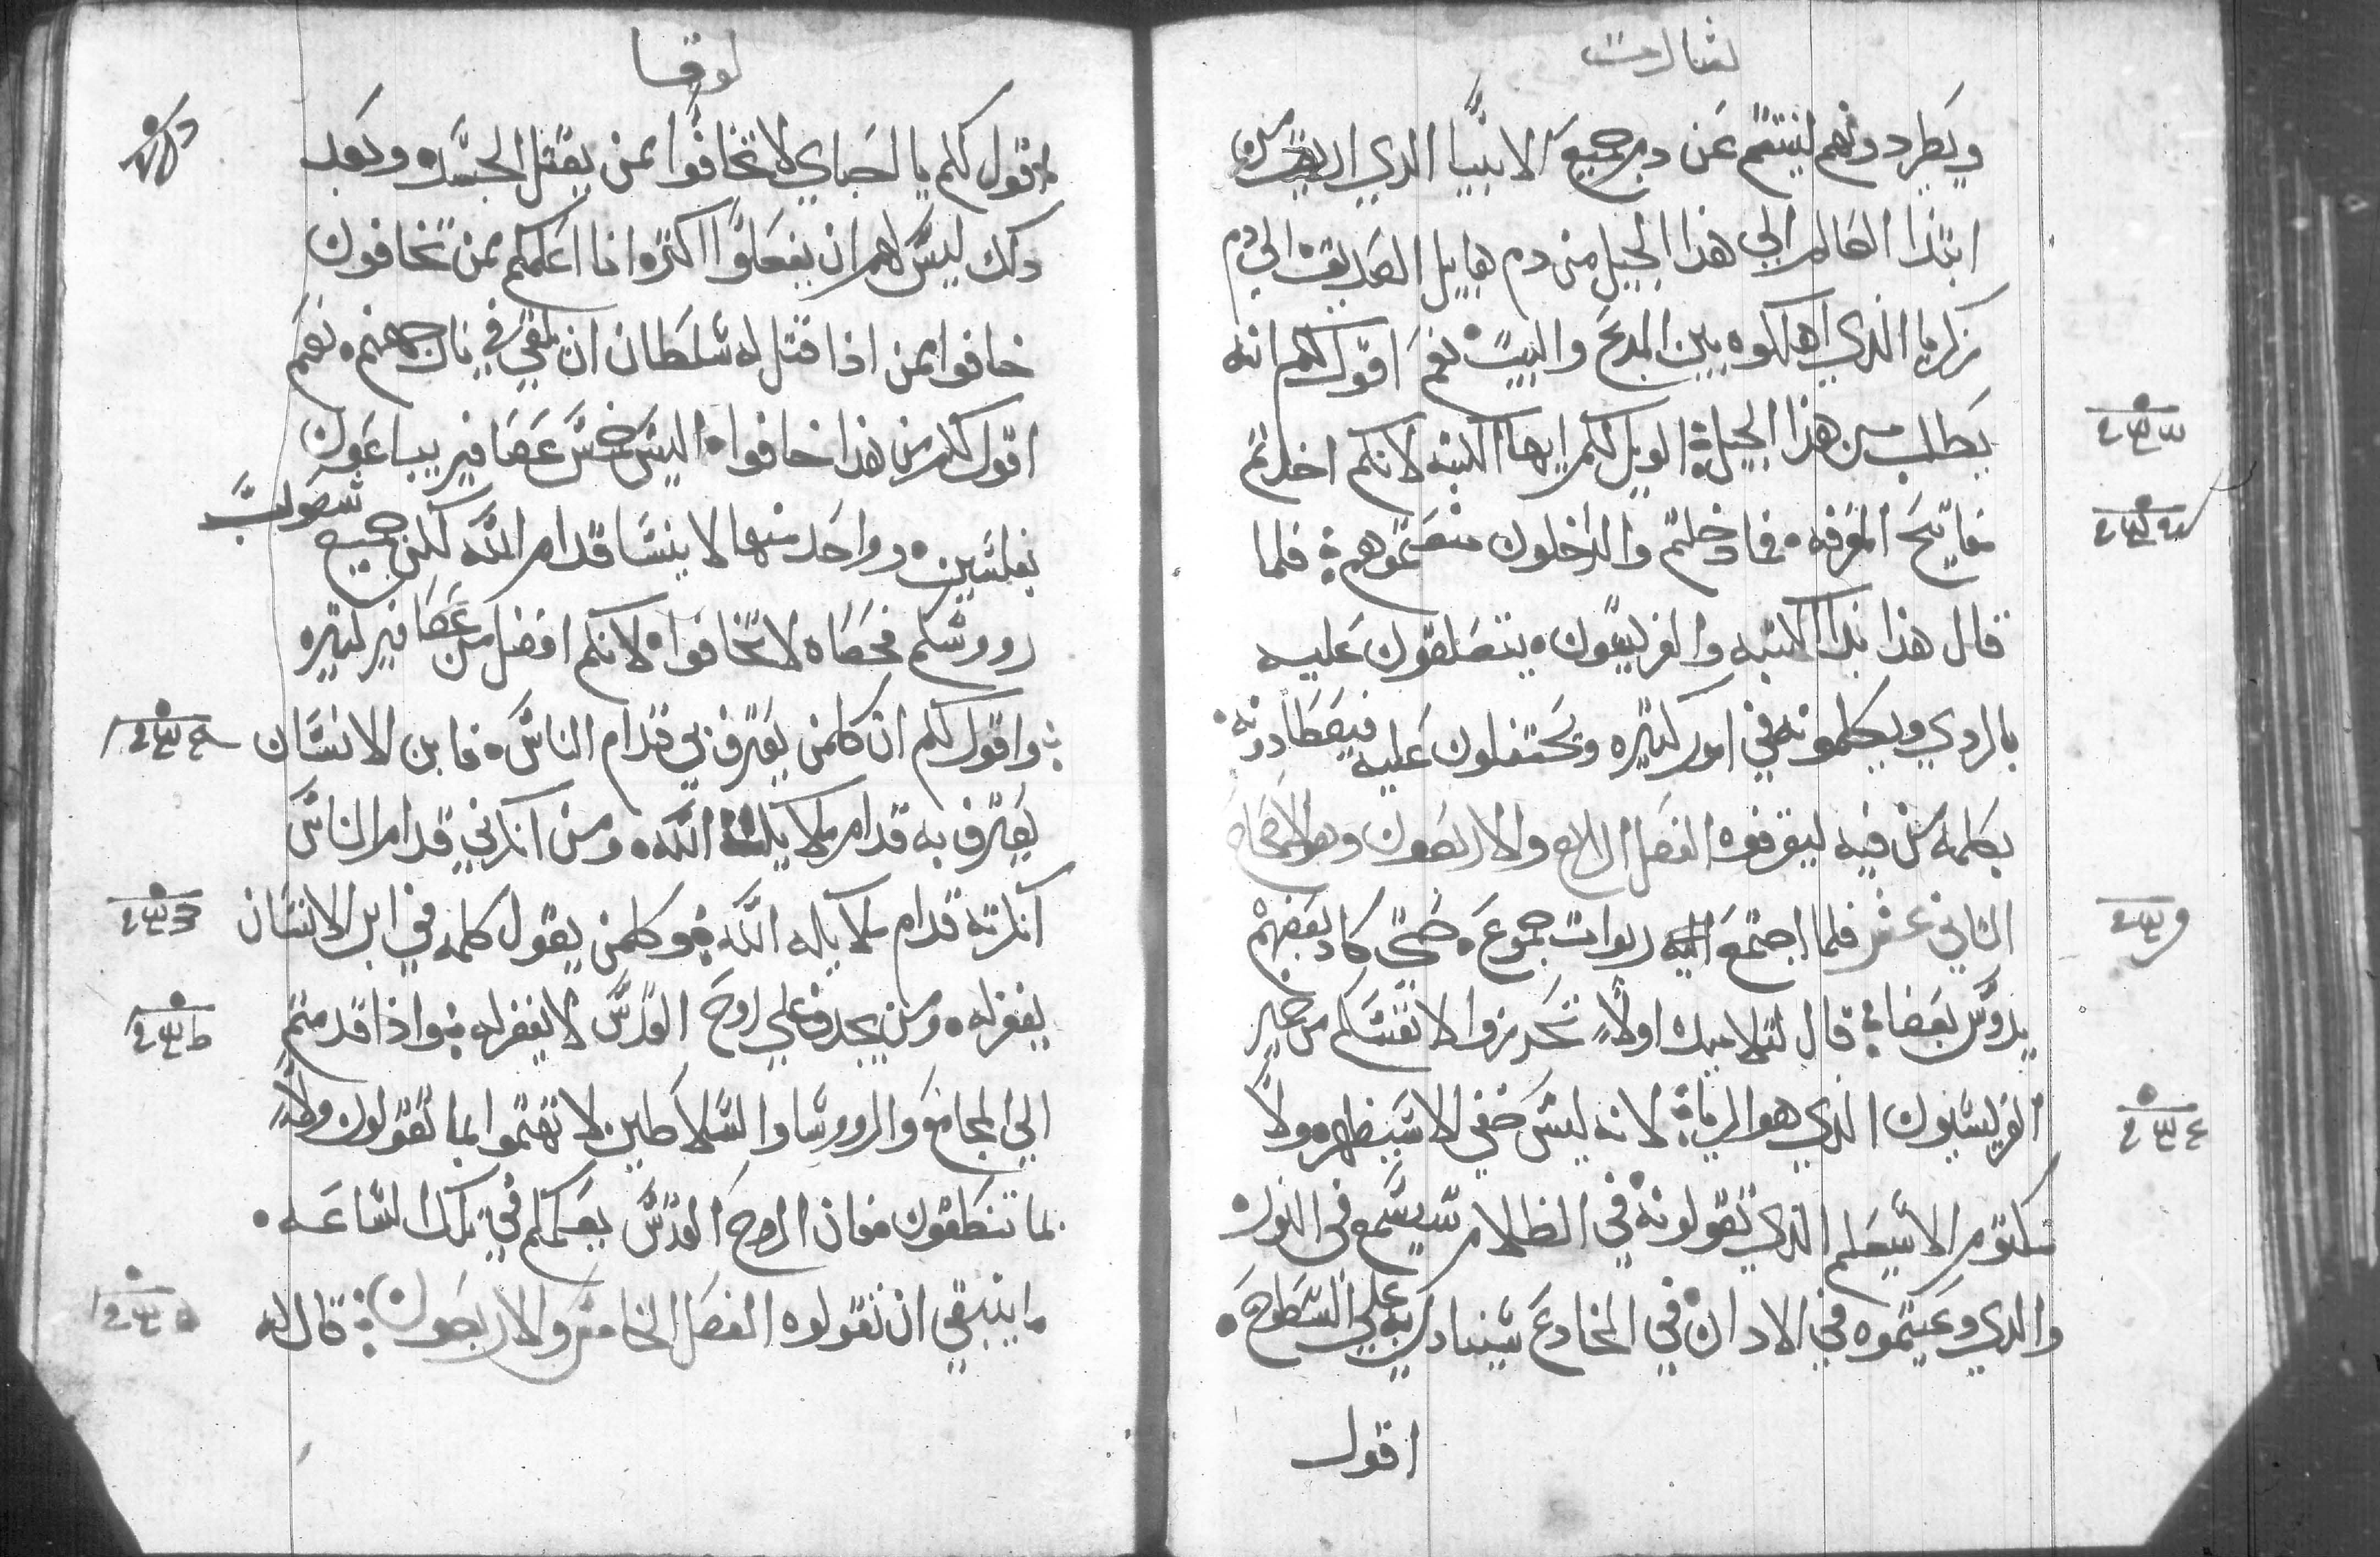 بشارت
ويطردونهم لينتقم عن دم جميع الانبيا الدي اريق من
ابتدا العالم الي هذا الجيل من دم هابيل الصديق الي دم
زكريا الذي اهلكوه بين المدبح والبيت نعم اقول لكم انه
يطلب من هذا الجيل الويل لكم ايها الكتبه لانكم اخدتم
مفاتيح المعرفه فما دخلتم والداخلون منعتموهم فلما
قال هذا بدا الكتبه والفريسيون يتصلقون عليه
بالردي ويكلمونه في امور كتيره ويحتفلون عليه فيصطادونه
بكلمه من فيه ليقرفوه الفصل الرابع والاربعون والاصحاح
الثاني عشر فلما اجتمع اليه ربوات جموع حتي كاد بعضهم
يدوس بعضا قال لتلاميده اولا تحرزوا لانفسكم من خمير
الفريسيون الذي هو الريا لانه ليس خفي الا سيظهر ولا
مكتوم الا سيعلم الذي تقولونه في الظلام سيسمع في النور
والدي وعيتموه في الادان في المخادع سينادي به علي السطوح
اقول
لوقا
اقول لكم يا احباي لا تخافوا ممن يقتل الجسد وبعد
دلك ليس لهم ان يفعلوا اكتر وانا اعلمكم ممن تخافون
خافوا ممن اذا قتل له سلطان ان يلقي في نار جهنم نعم
اقول لكم من هذا خافوا اليس خمس عصافير يباعون
بفلسين وواحد منها لا ينسا قدام الله لكن جميع شعور
روورسكم محصاه لا تخافوا لانكم افضل من عصافير كتيره
واقول لكم ان كلمن يعترف بي قدام الناس فابن الانسان
يعترف به قدام ملايكة الله ومن انكرني قدام الناس
انكرته قدام ملايكه الله وكلمن يقول كلمه في ابن الانسان
يغفر له ومن يجدف علي روح القدس لا يغفر له واذا قدمتم
الي المجامع والروسا والسلاطين لا تهتموا بما تقولون ولا
بما تنطقون فان الروح القدس يعلمكم في تلك الساعه
ما ينبغي ان تقولوه الفصل الخامس والاربعون قال له